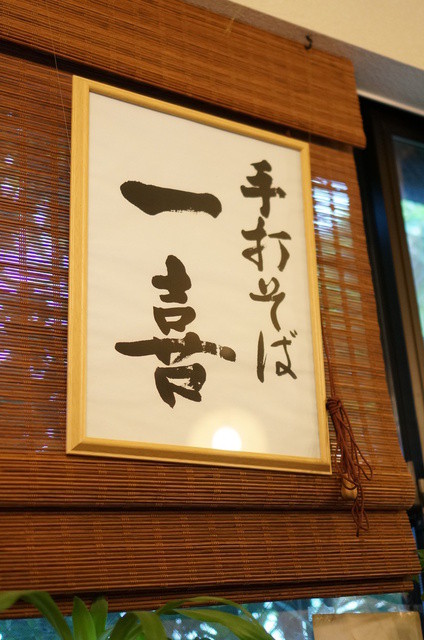 手打そば
一喜